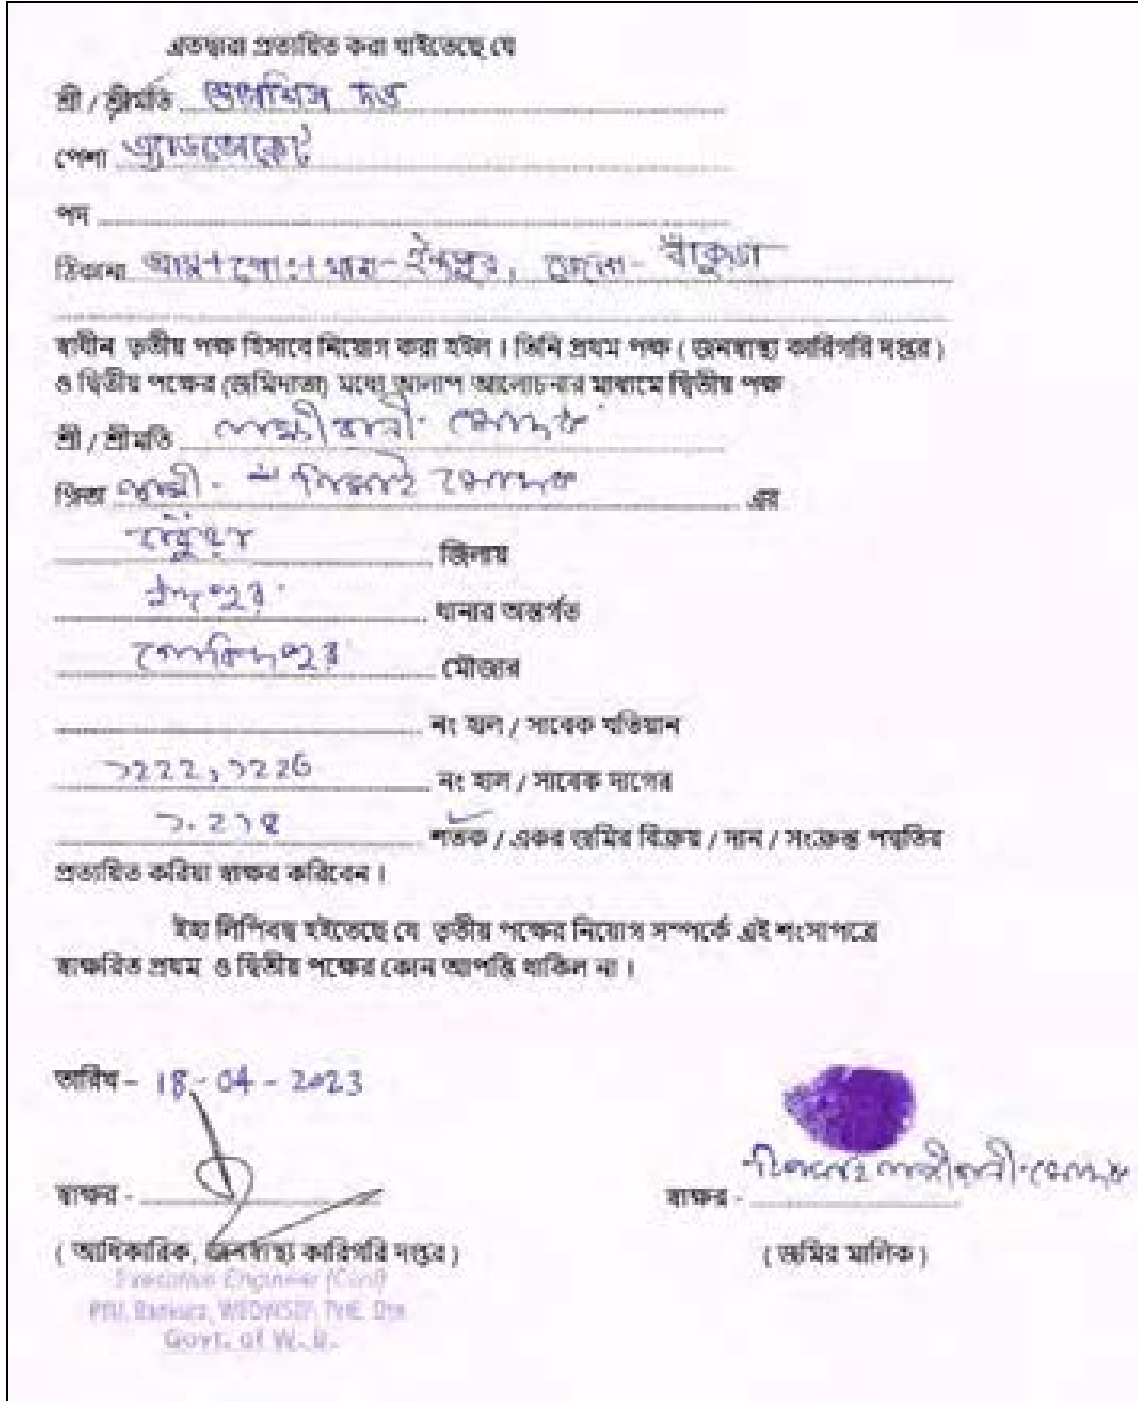 এতদ্বারা প্রত্যায়িত করা যাইতেছে যে
শ্রী / শ্রীমতি দত্ত
পেশা এ্যাডভোকেট
পদ
ঠিকানা গ্রাম + পোঃ + থানা - ইন্দপুর, জেলা - বাঁকুড়া
স্বাধীন তৃতীয় পক্ষ হিসাবে নিয়োগ করা হইল । তিনি প্রথম পক্ষ ( জনস্বাস্থ্য কারিগরি দপ্তর )
ও দ্বিতীয় পক্ষের (জমিদাতা) মধ্যে আলাপ আলোচনার মাধ্যমে দ্বিতীয় পক্ষ
শ্রী / শ্রীমতি লক্ষ্মীরানী মোদক
পিতা স্বামী - নিমাই মোদক এর
বাঁকুড়া জিলায়
ইন্দপুর থানার অন্তর্গত
গোবিন্দপুর মৌজার
নং হাল / সাবেক খতিয়ান
১২২২, ১২২৬ নং হাল / সাবেক দাগের
শতক / একর জমির বিক্রয় / দান / সংক্রান্ত পদ্ধতির
প্রত্যায়িত করিয়া স্বাক্ষর করিবেন ।
ইহা লিপিবদ্ধ হইতেছে যে তৃতীয় পক্ষের নিয়োগ সম্পর্কে এই শংসাপত্রে
স্বাক্ষরিত প্রথম ও দ্বিতীয় পক্ষের কোন আপত্তি থাকিল না ।
তারিখ – 18 - 04 - 2023
স্বাক্ষর -
স্বাক্ষর - লক্ষ্মীরানী মোদক
( আধিকারিক, জনস্বাস্থ্য কারিগরি দপ্তর )
( জমির মালিক )
Executive Engineer (Civil)
PIU, Bankura, WBDWSIP, PHE Dte
Govt. of W.B.